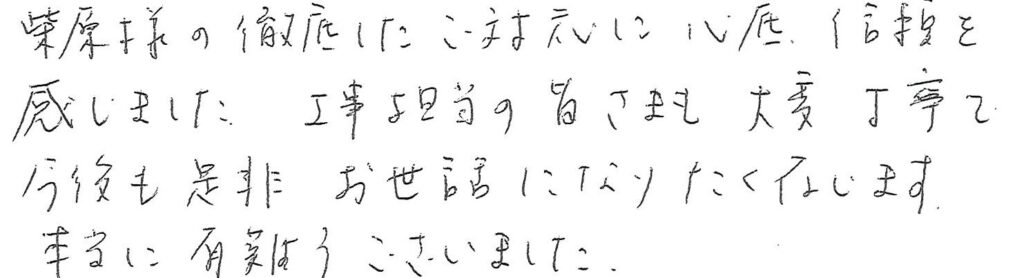 柴原様の徹底したご対応に心底、信頼を
感じました。工事担当の皆さまも大変丁寧で
今後も是非お世話になりたく存じます。
本当に有難うございました。